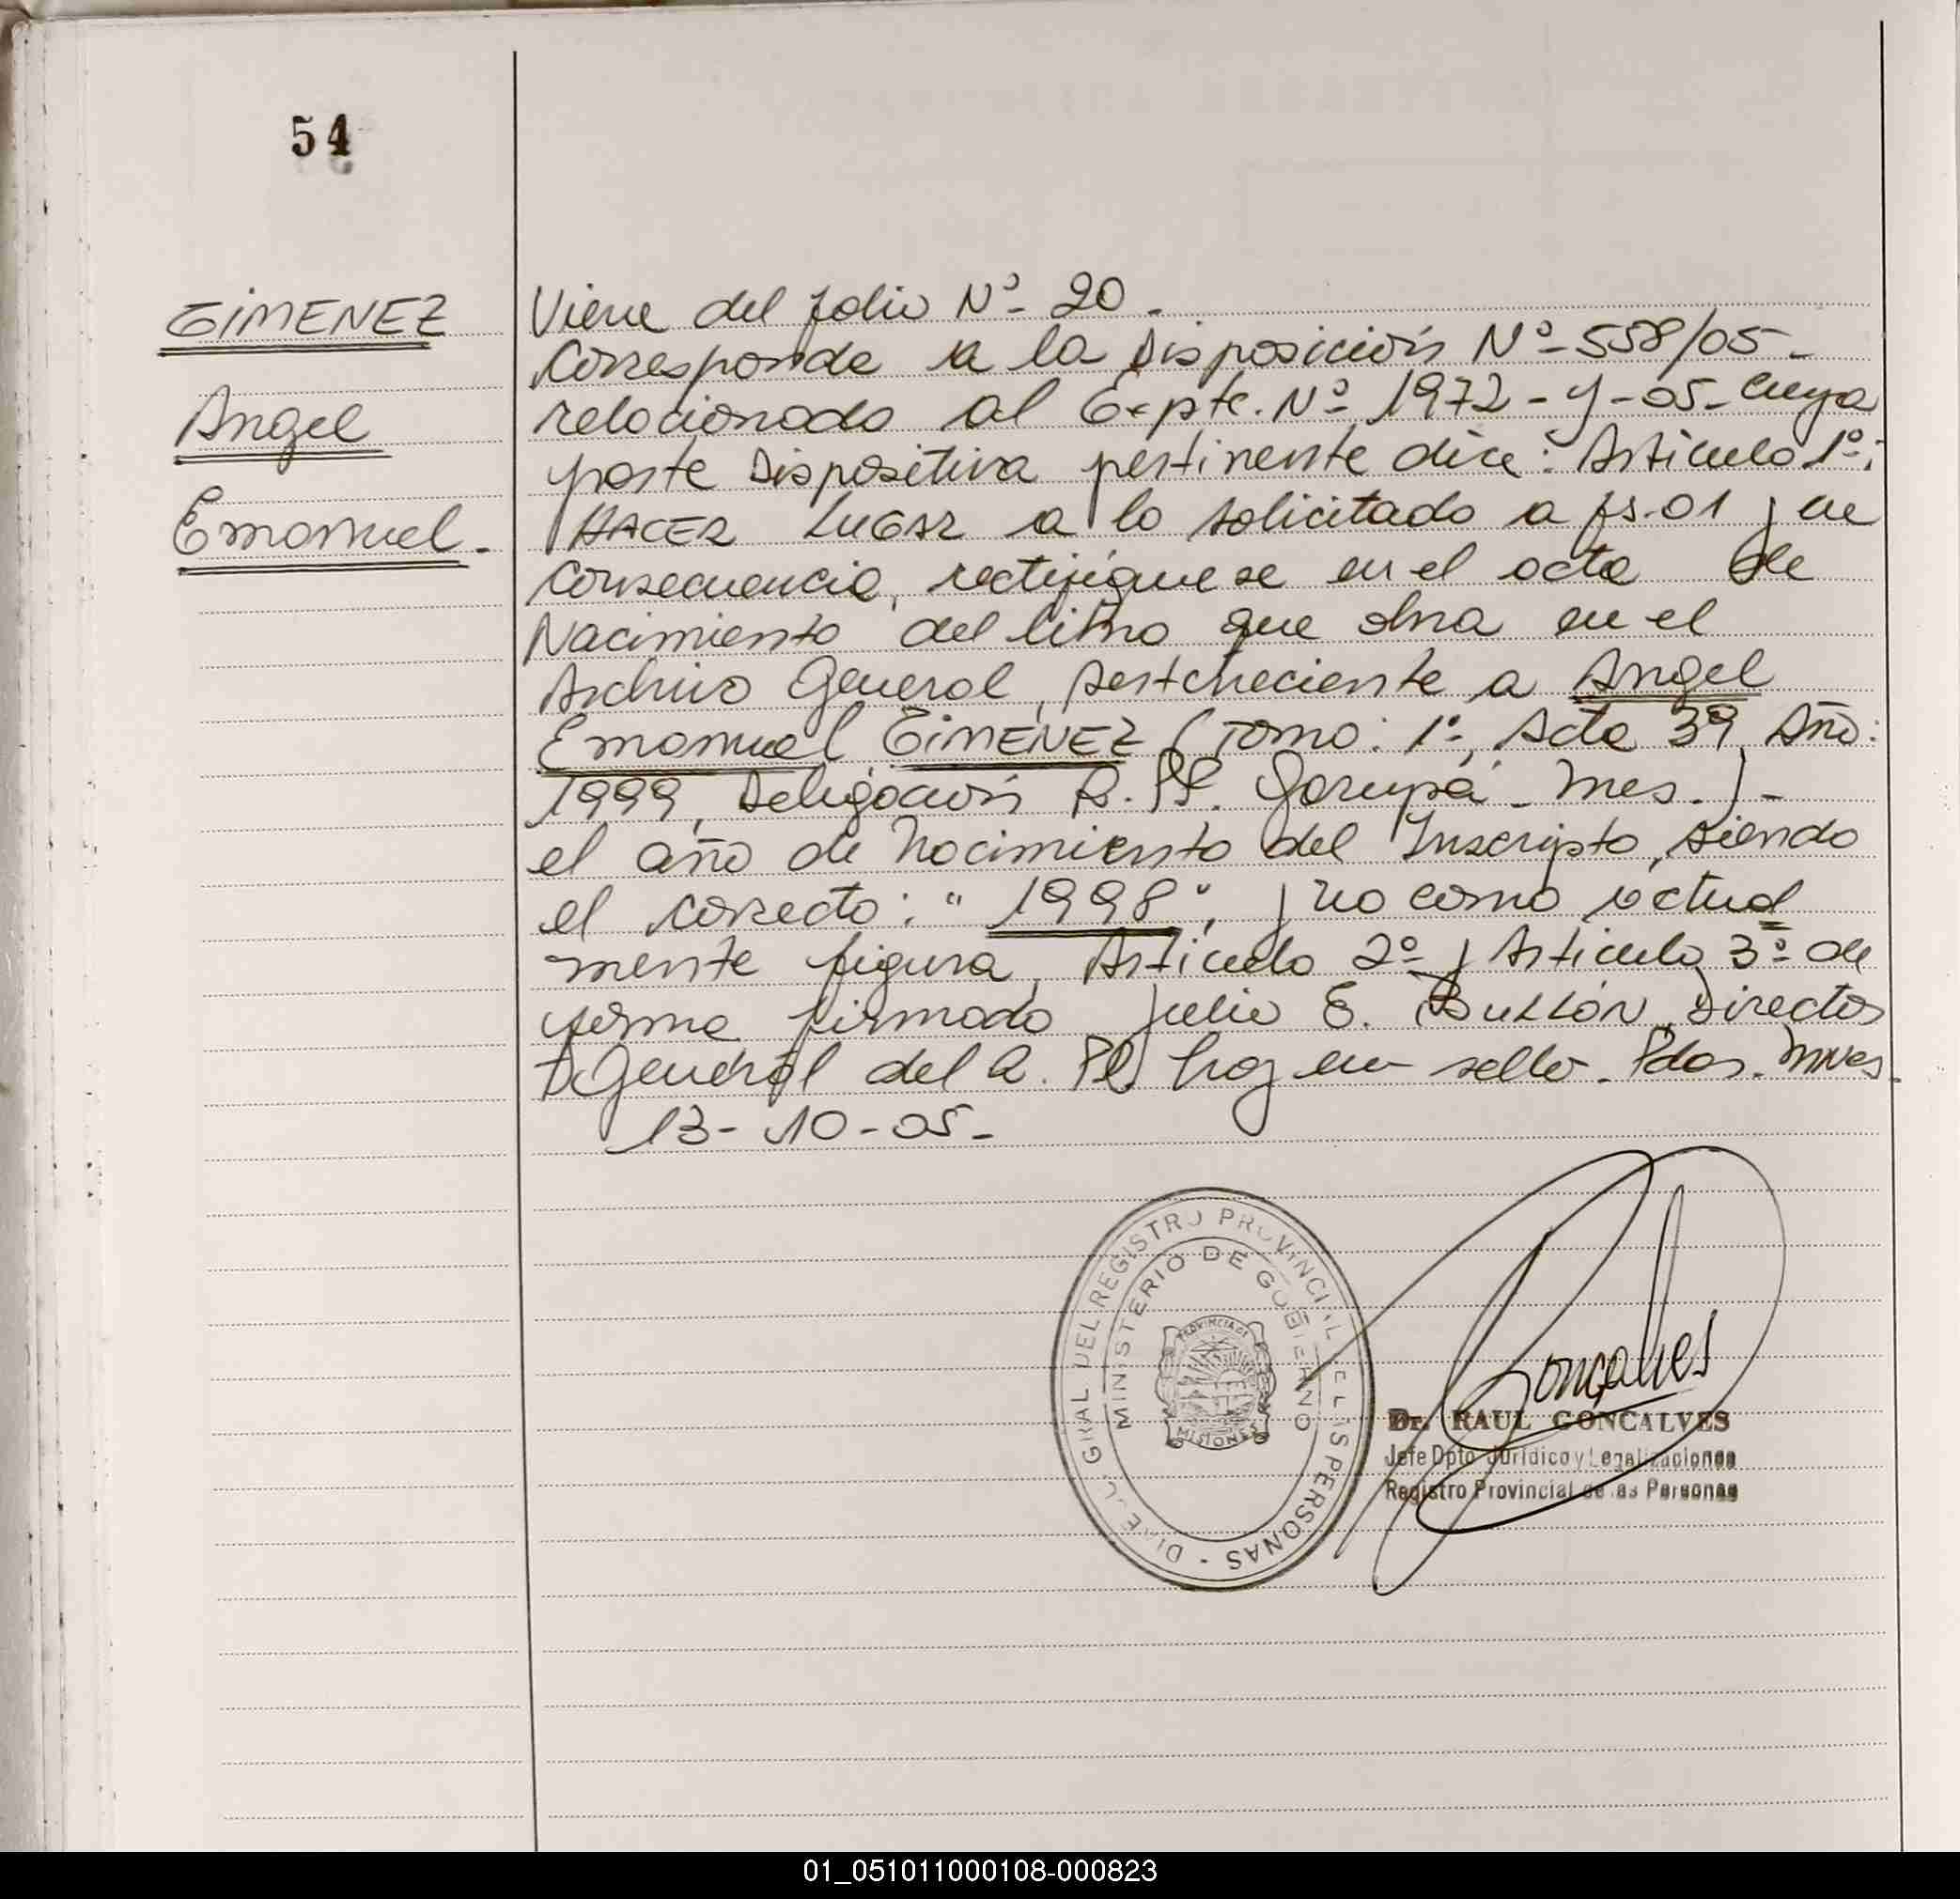 54
GIMENEZ
Angel
Emanuel.
Viene del folio Nº- 20.
Corresponde a la Disposición Nº-558/05-
relacionado al Expte. Nº 1972-Y-05- cuya
parte Dispositiva pertinente dice: Artículo 1º:
HACER LUGAR a lo solicitado a fs.01 y en
consecuencia, rectifíquese en el acta de
Nacimiento del libro que obra en el
Archivo General, perteneciente a Angel
Emanuel GIMENEZ (Tomo: 1º, Acta 39, Año:
1999, Delegación R.P.P. Garupá - Mnes.)-
el año de nacimiento del Inscripto, siendo
el correcto: "1998", y no como actual
mente figura, Artículo 2º y Artículo 3º de
forma firmado Julio E. Director
General del R.P.P. hay un sello. Pdas. Mnes.
13-10-05-
DIREC. GRAL DEL REGISTRO PROVINCIAL DE LAS PERSONAS -
MINISTERIO DE GOBIERNO
PROVINCIA DE
MISIONES
Goncalves
Dr. RAUL GONCALVES
Jefe Dpto Jurídico y Legalizaciones
Registro Provincial de las Personas
01_051011000108-000823